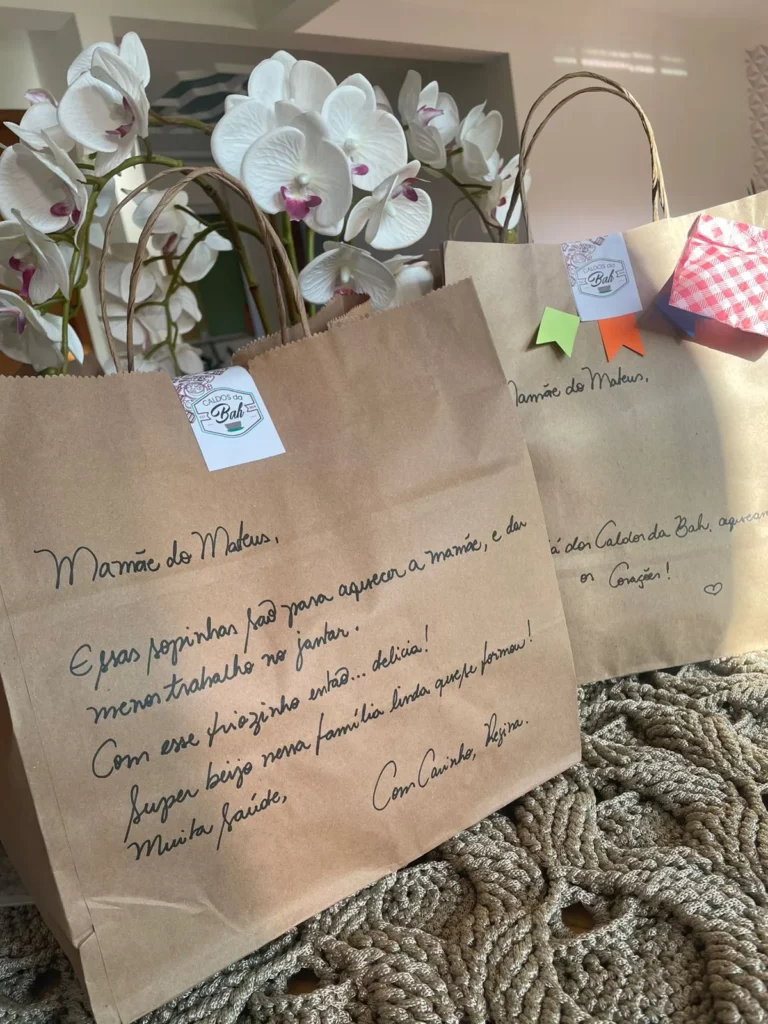 CALDOS da
Bah
Mamãe do Mateus,
Essas sopinhas são para aquecer a mamãe, e dar
menos trabalho no jantar.
Com esse friozinho então... delícia!
Super beijo nessa família linda que se formou!
Muita saúde,
Com Carinho, Regina.
CALDOS da
Bah
Mamãe do Mateus,
dos Caldos da Bah, aqueçam
os Corações!